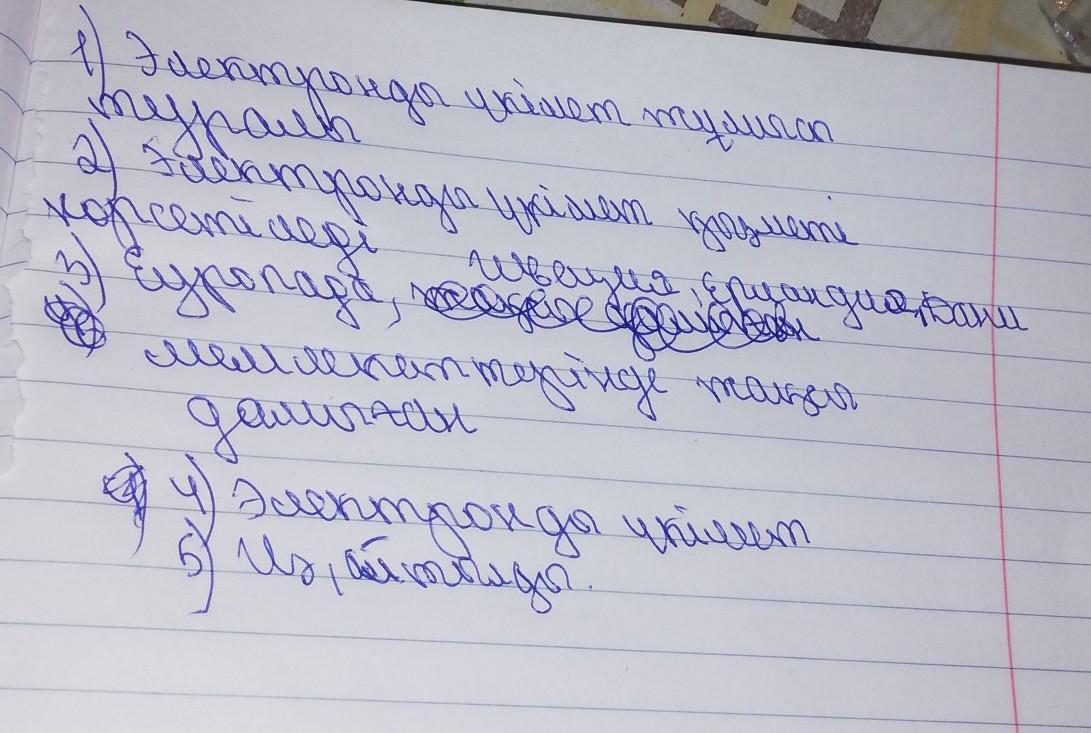 1) Электронды үкімет тұлғасы
туралы
2) Электронды үкімет қызметі
көрсетіледі
3) Еуропада, Швеция, Ерландия, Дания
мемлекеттерінде жақсы
дамыған
4) Электронды үкімет
5) Иә, айтылды.